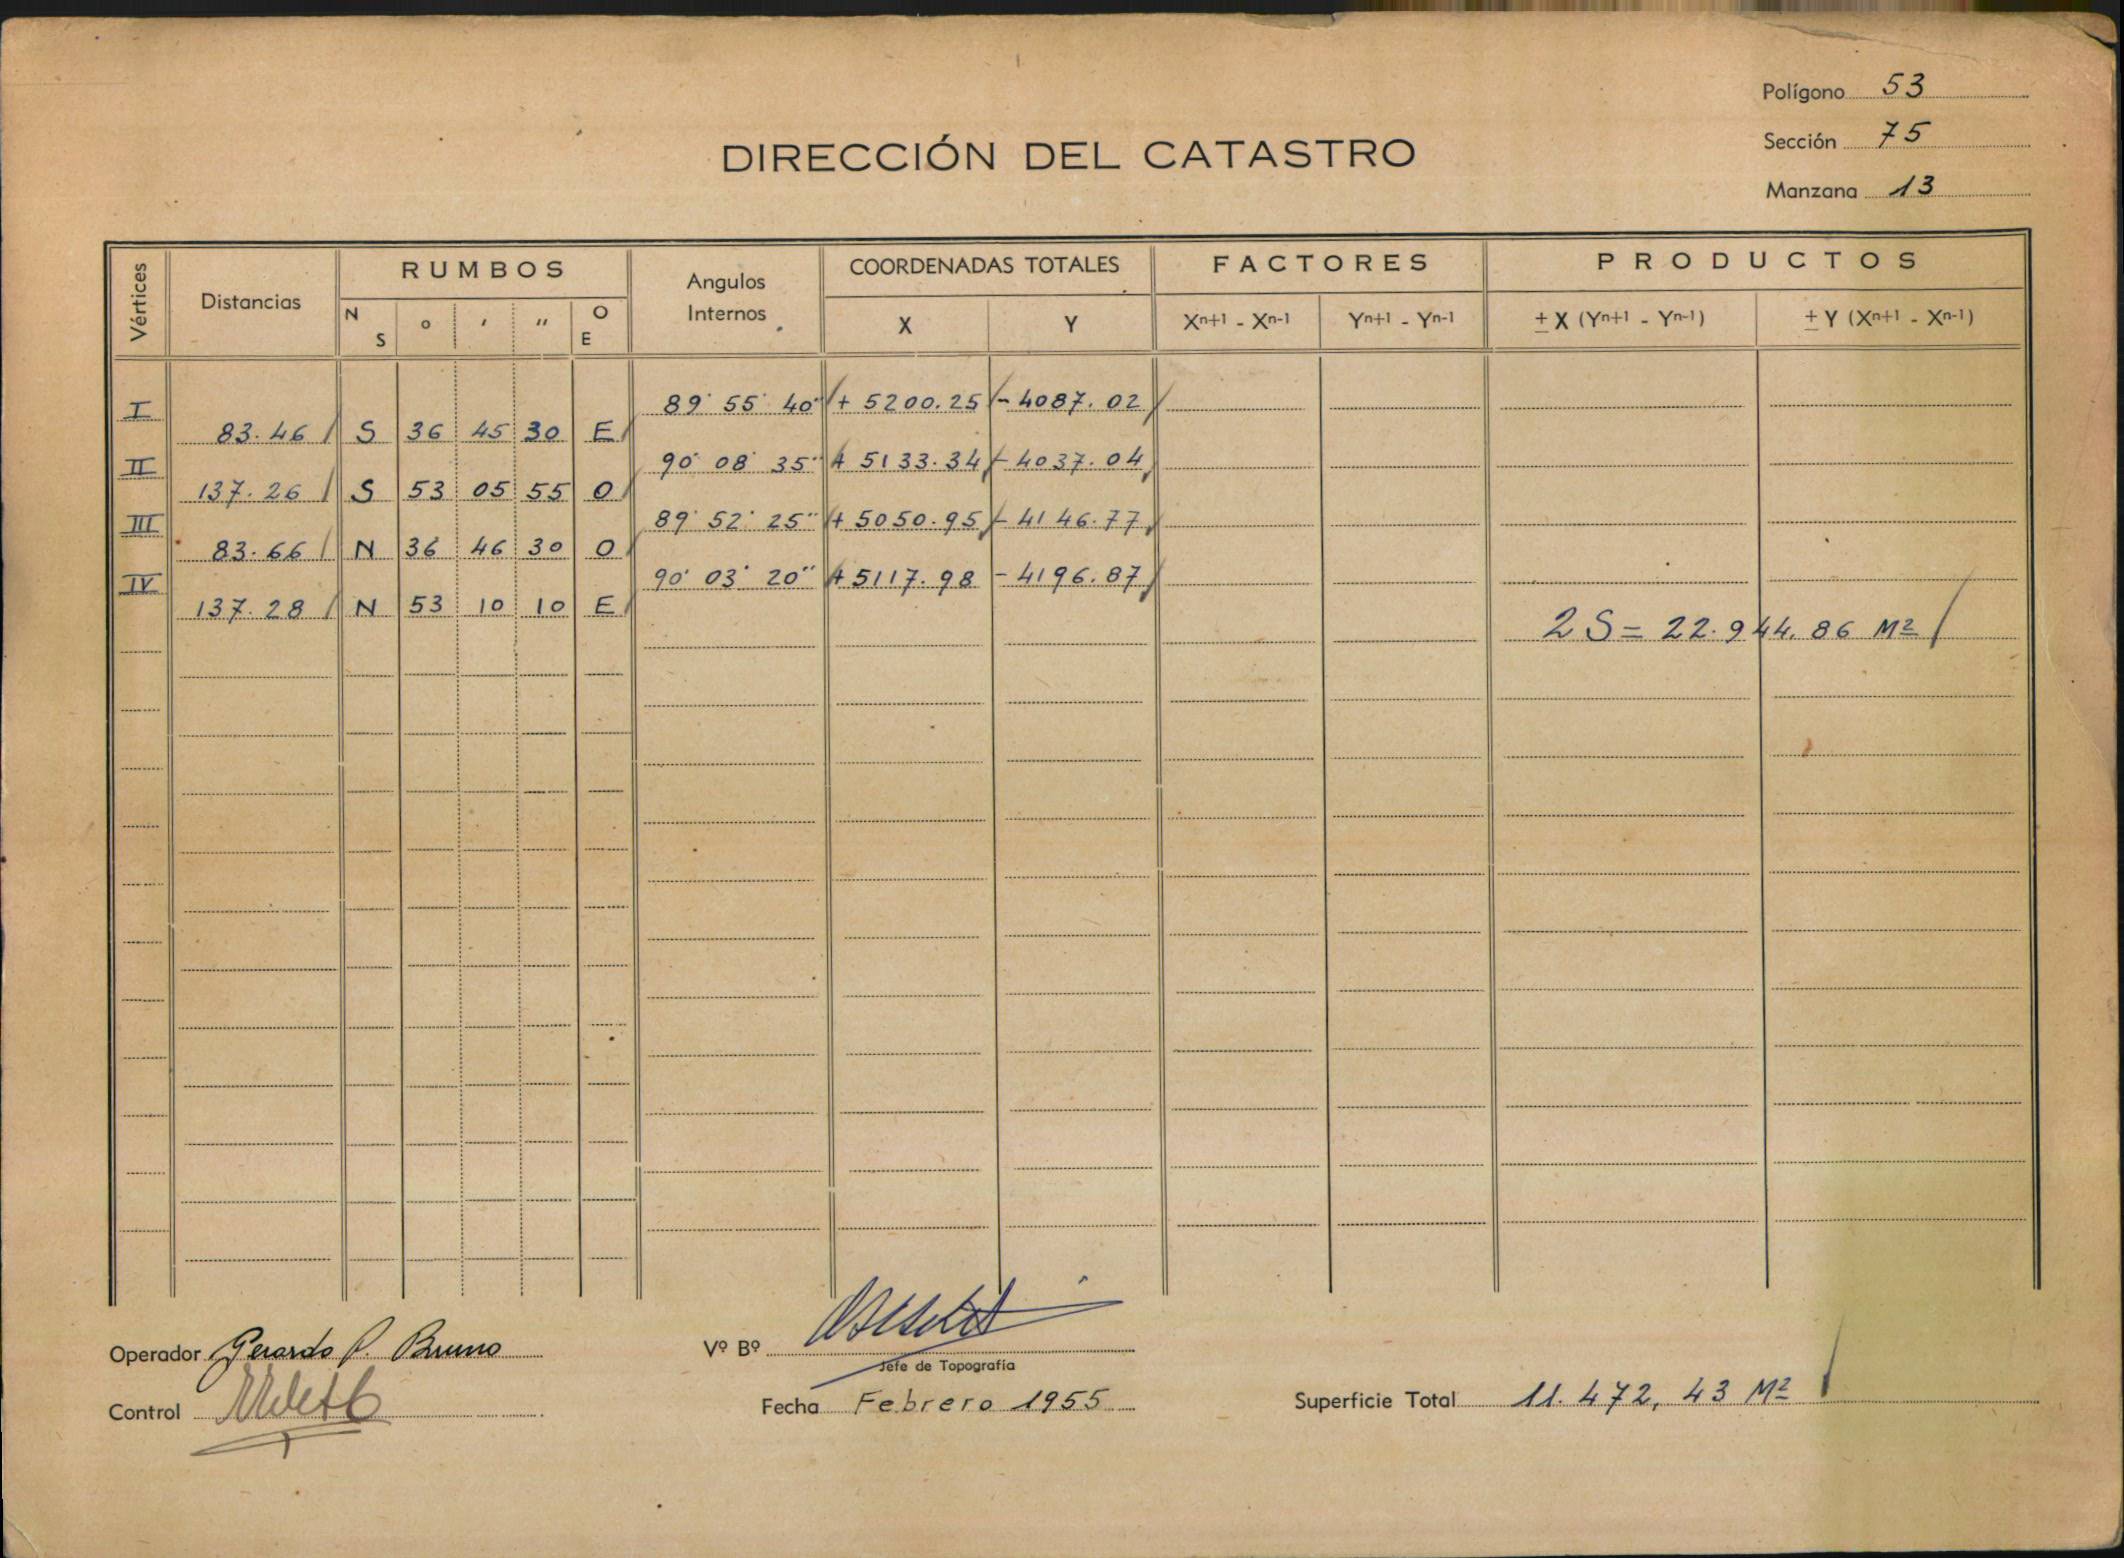 Polígono 53
Sección 75
Manzana 13
DIRECCIÓN DEL CATASTRO
Vértices Distancias RUMBOS Angulos Internos COORDENADAS TOTALES FACTORES PRODUCTOS
N S o ' " O E X Y Xn+1 - Xn-1 Yn+1 - Yn-1 ± X (Yn+1 - Yn-1) ± Y (Xn+1 - Xn-1)
I 89° 55' 40" + 5200.25 - 4087.02
83.46 S 36 45 30 E
II 90° 08' 35" + 5133.34 - 4037.04
137.26 S 53 05 55 O
III 89° 52' 25" + 5050.95 - 4146.77
83.66 N 36 46 30 O
IV 90° 03' 20" + 5117.98 - 4196.87
137.28 N 53 10 10 E
2 S = 22.944.86 M²
Operador Gerardo P. Bruno
Vº Bº
Jefe de Topografía
Control
Fecha Febrero 1955
Superficie Total 11.472,43 M²